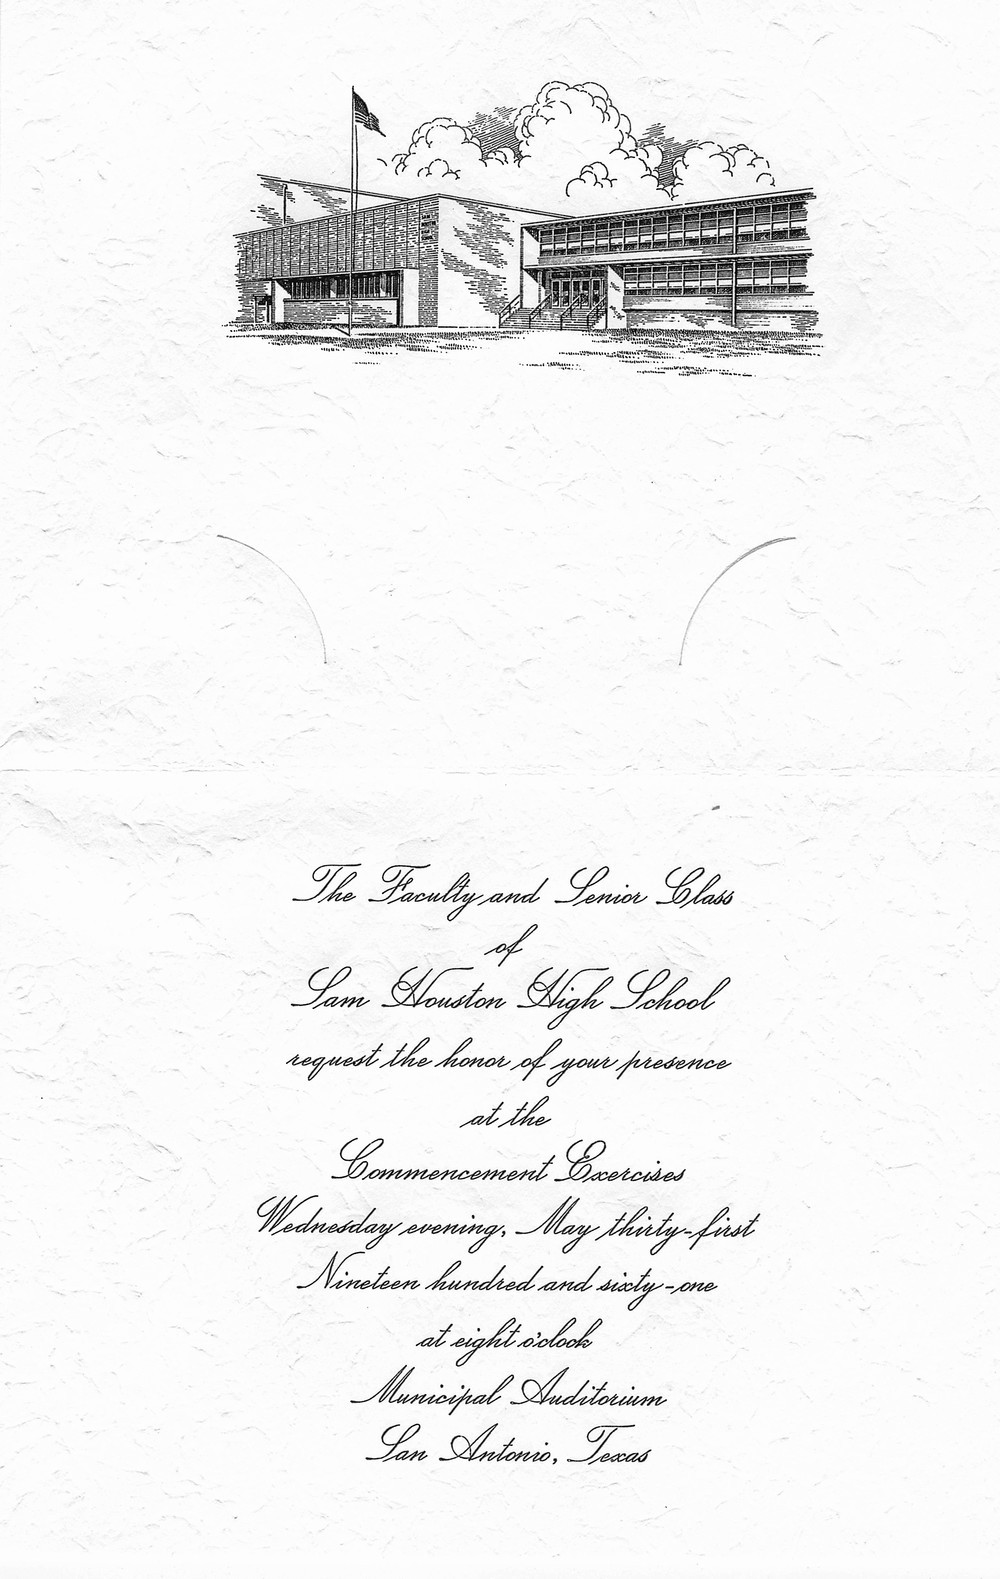 The Faculty and Senior Class
of
Sam Houston High School
request the honor of your presence
at the
Commencement Exercises
Wednesday evening, May thirty-first
Nineteen hundred and sixty-one
at eight o'clock
Municipal Auditorium
San Antonio, Texas